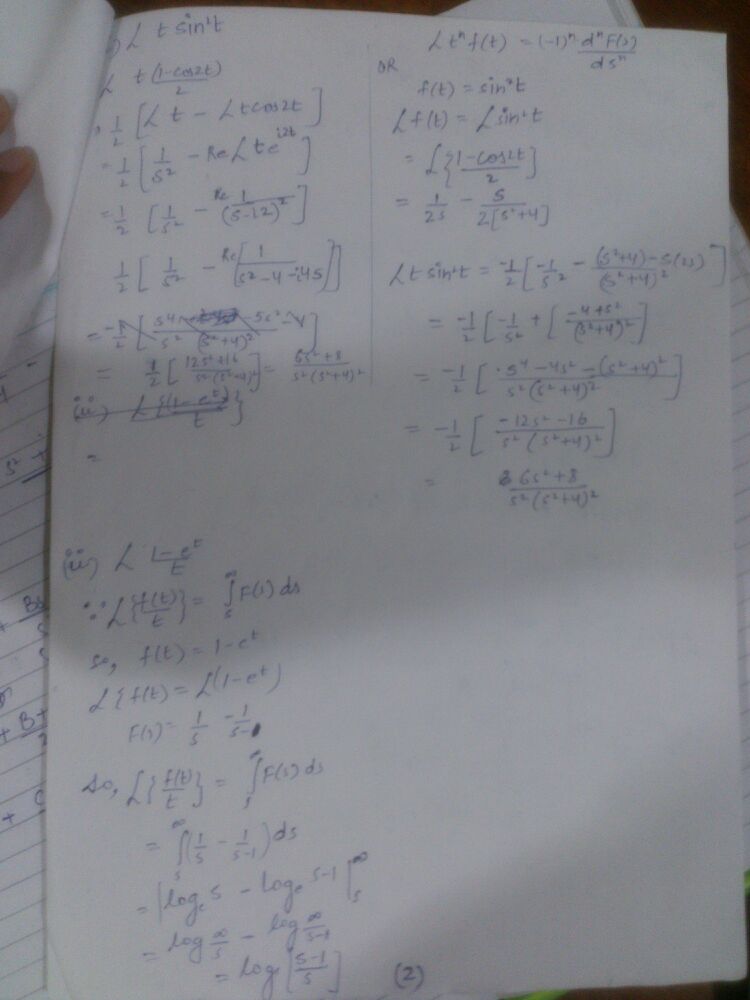 i) ℒ t sin²t
ℒ t (1-cos2t)/2
1/2 [ℒ t - ℒ t cos2t]
= 1/2 [1/s² - Re ℒ t e^(i2t)]
= 1/2 [1/s² - Re 1/(s-i2)²]
1/2 [1/s² - Re[1/(s²-4-i4s)]]
= 1/2 [12s²+16/s²(s²+4)²] = 6s²+8/s²(s²+4)²
(ii) ℒ{(1-e^t)/t}
=
ℒ tⁿ f(t) = (-1)ⁿ dⁿF(s)/dsⁿ
OR
f(t) = sin²t
ℒ f(t) = ℒ sin²t
= ℒ{(1-cos2t)/2}
= 1/2s - s/2[s²+4]
ℒ t sin²t = -1/2 [-1/s² - (s²+4)-s(2s)/(s²+4)²]
= -1/2 [-1/s² + [-4+s²/(s²+4)²]
= -1/2 [s⁴-4s²-(s²+4)²/s²(s²+4)²]
= -1/2 [-12s²-16/s²(s²+4)²]
= 6s²+8/s²(s²+4)²
(ii) ℒ 1-e^t/t
∵ ℒ{f(t)/t} = ∫_s^∞ F(s) ds
so, f(t) = 1-e^t
ℒ{f(t) = ℒ(1-e^t)
F(s) = 1/s - 1/s-1
So, ℒ{f(t)/t} = ∫_s^∞ F(s) ds
= ∫_s^∞ (1/s - 1/s-1) ds
= |log_e s - log_e s-1|_s^∞
= log ∞/s - log ∞/s-1
= log [s-1/s]
(2)